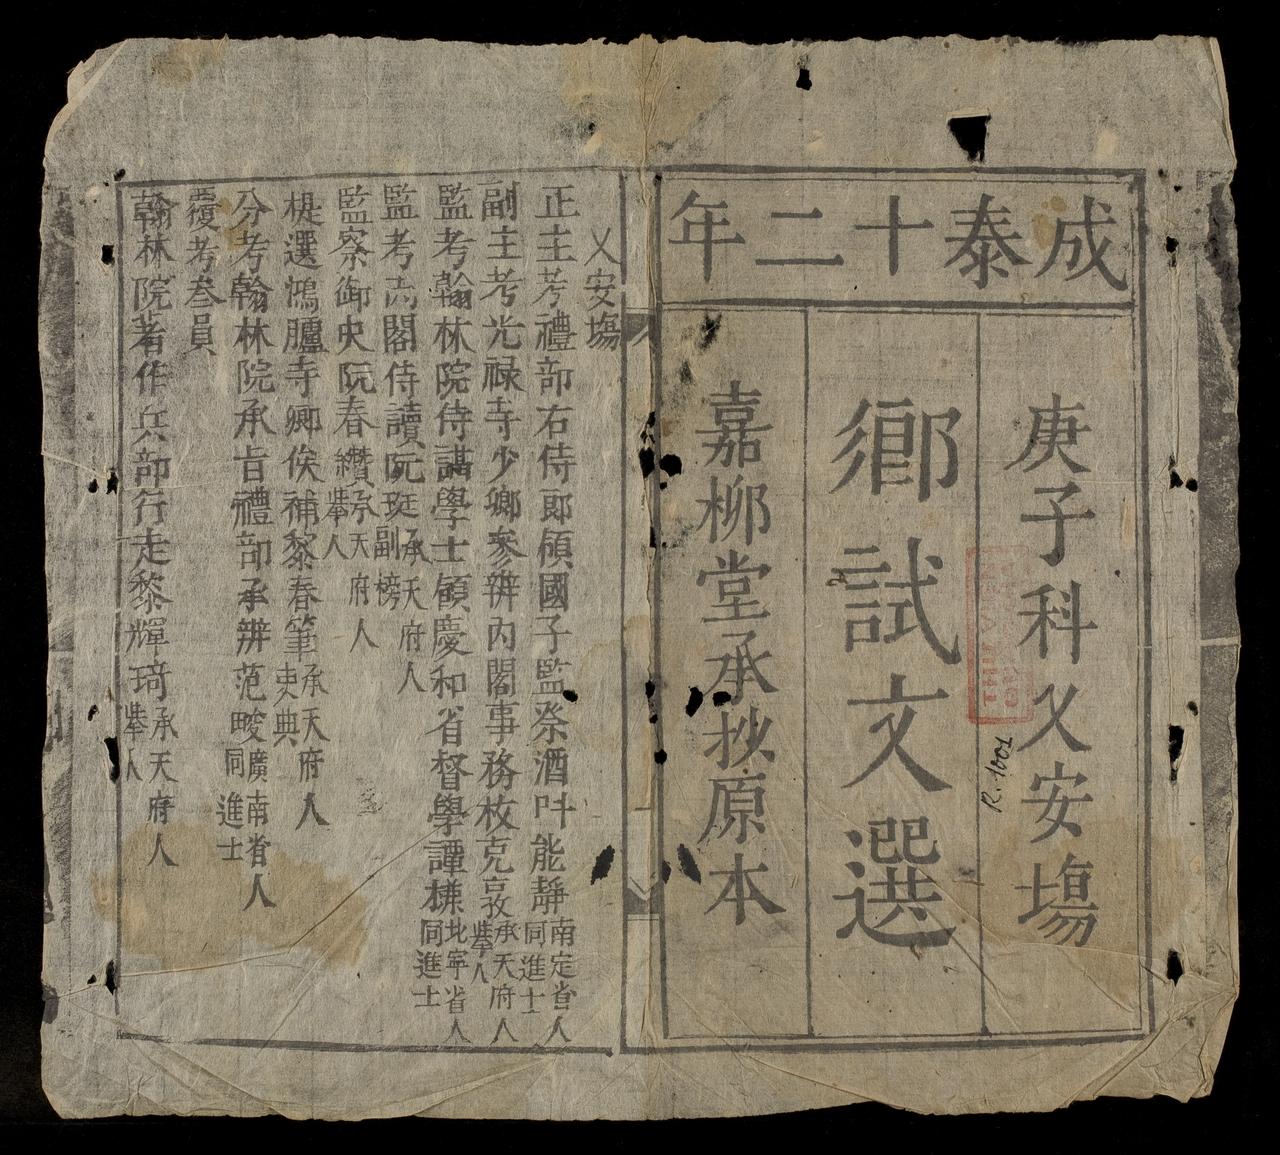 成泰十二年
庚子科乂安場
鄉試文選
嘉柳堂承抄原本
R.1001
乂安場
正主考禮部右侍郎領國子監祭酒叶能靜南定省人同進士
副主考光禄寺少鄉参辨内閣事務枚克敦承天府人舉人
監考翰林院侍講學士領慶和省督學譚㮨北寜省人同進士
監考高閣侍讀阮珽承天府人副榜
監察御史阮春纘承天府人舉人
提選鴻臚寺卿候補黎春筆承天府人吏典
分考翰林院承旨禮部承辨范畯廣南省人同進士
覆考叁員
翰林院著作兵部行走黎輝琦承天府人舉人